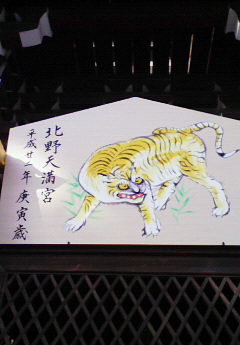 北野天満宮
平成廿二年庚寅歳